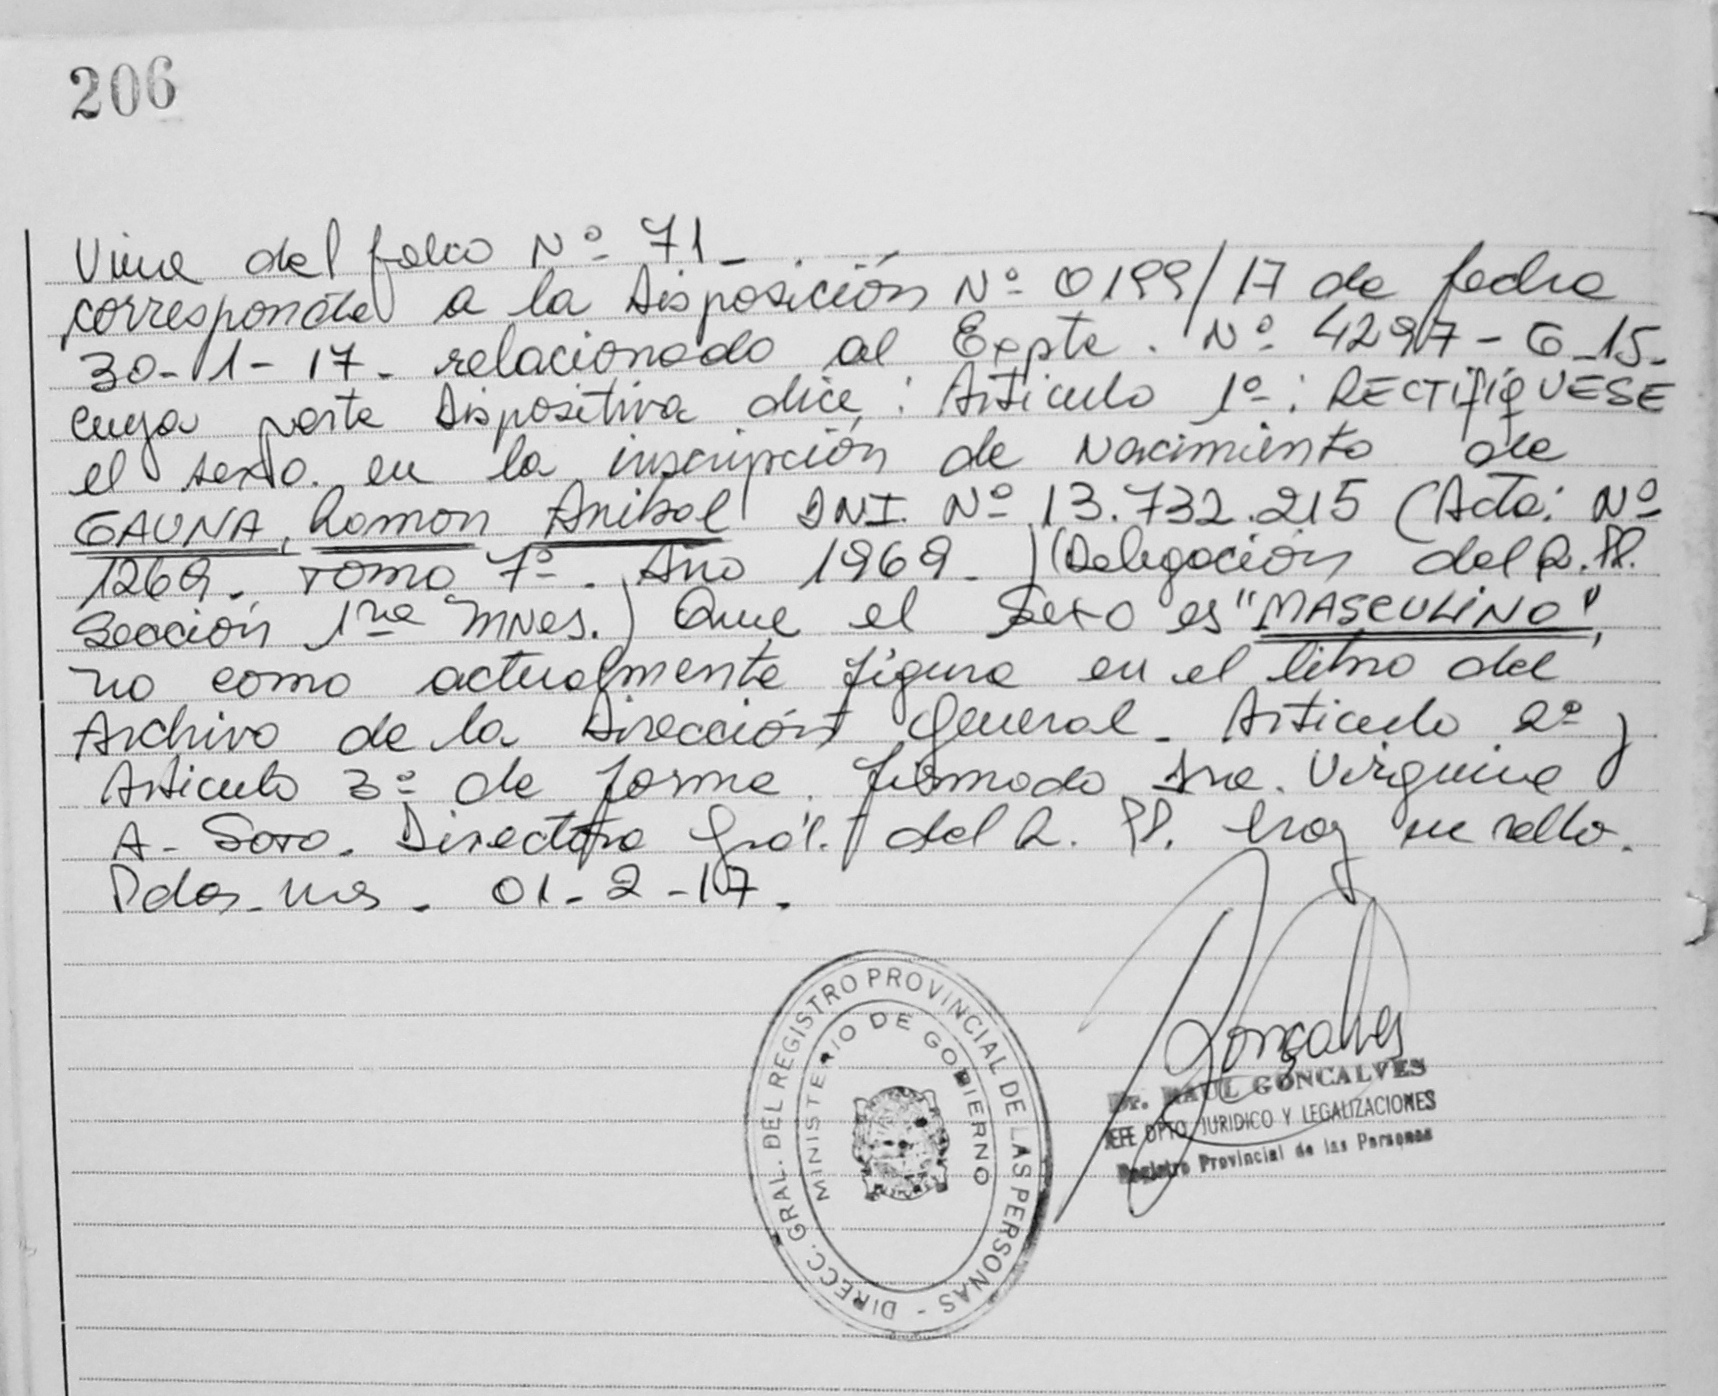 206
Viene del folio Nº 71_
corresponde a la Disposición Nº 0199/17 de fecha
30-1-17_ relacionado al Expte. Nº 4297-G-15_
cuya parte Dispositiva dice: Articulo 1º: RECTIFIQUESE
el sexo en la inscripción de Nacimiento de
GAUNA, Ramon Anibal DNI. Nº 13.732.215 (Acta: Nº
1269_ Tomo 7º. Año 1969_) (Delegación del R.PP.
Sección 1ra Mnes.) Que el Sexo es "MASCULINO",
no como actualmente figura en el libro del
Archivo de la Dirección General_ Articulo 2º y
Articulo 3º de forma. firmado Sra. Virginia
A. Soto. Directora Gral. del R. PP. hay un sello.
Pdas. Mes. 01-2-17.
DIRECC. GRAL. DEL REGISTRO PROVINCIAL DE LAS PERSONAS -
MINISTERIO DE GOBIERNO
Gonçalves
Dr. RAUL GONCALVES
JEFE DPTO JURIDICO Y LEGALIZACIONES
Registro Provincial de las Personas